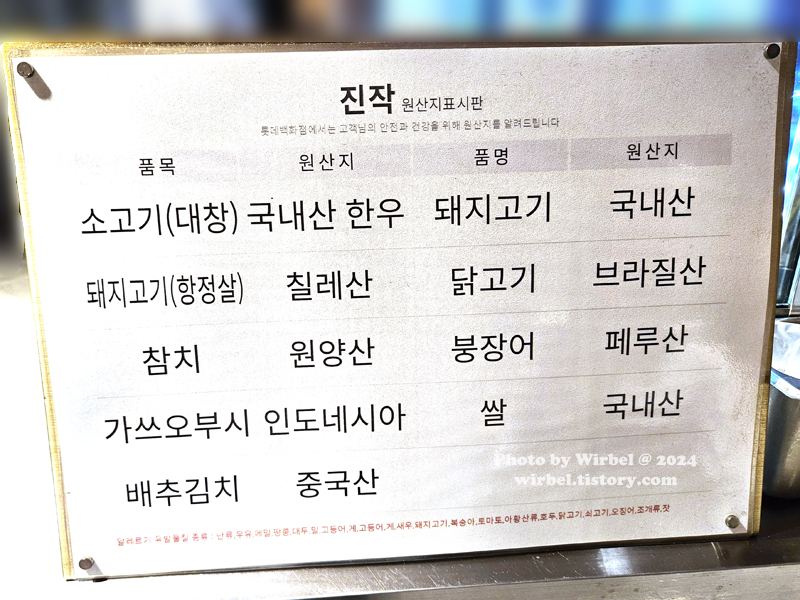 진작 원산지표시판
롯데백화점에서는 고객님의 안전과 건강을 위해 원산지를 알려드립니다
품목 원산지 품명 원산지
소고기(대창) 국내산 한우 돼지고기 국내산
돼지고기(항정살) 칠레산 닭고기 브라질산
참치 원양산 붕장어 페루산
가쓰오부시 인도네시아 쌀 국내산
배추김치 중국산
Photo by Wirbel @ 2024
wirbel.tistory.com
알레르기 유발물질 종류 : 난류,우유,메밀,땅콩,대두,밀,고등어,게,고등어,게,새우,돼지고기,복숭아,토마토,아황산류,호두,닭고기,쇠고기,오징어,조개류,잣